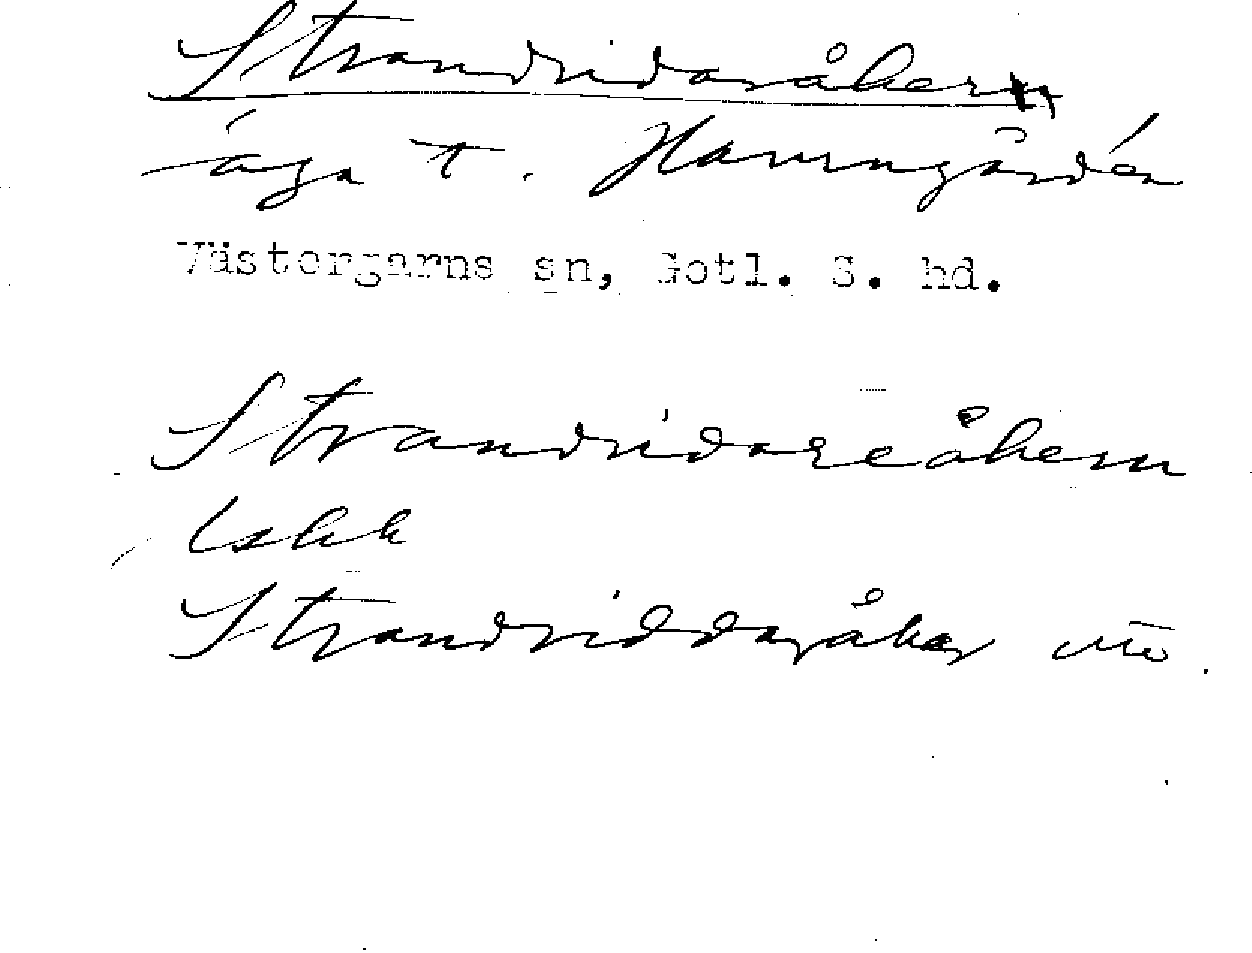 Strandridaråkern
äga t. Hamngården
Västergarns sn, Gotl. S. hd.
Strandridareåkern
Iskk
Strandriddaråker